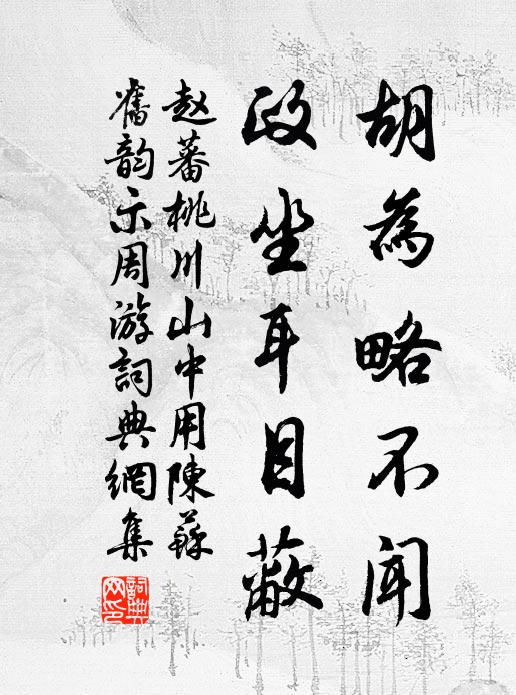 胡為略不聞
政坐耳目蔽
赵蕃桃川山中用陳蘇
舊韵示周游詞典網集